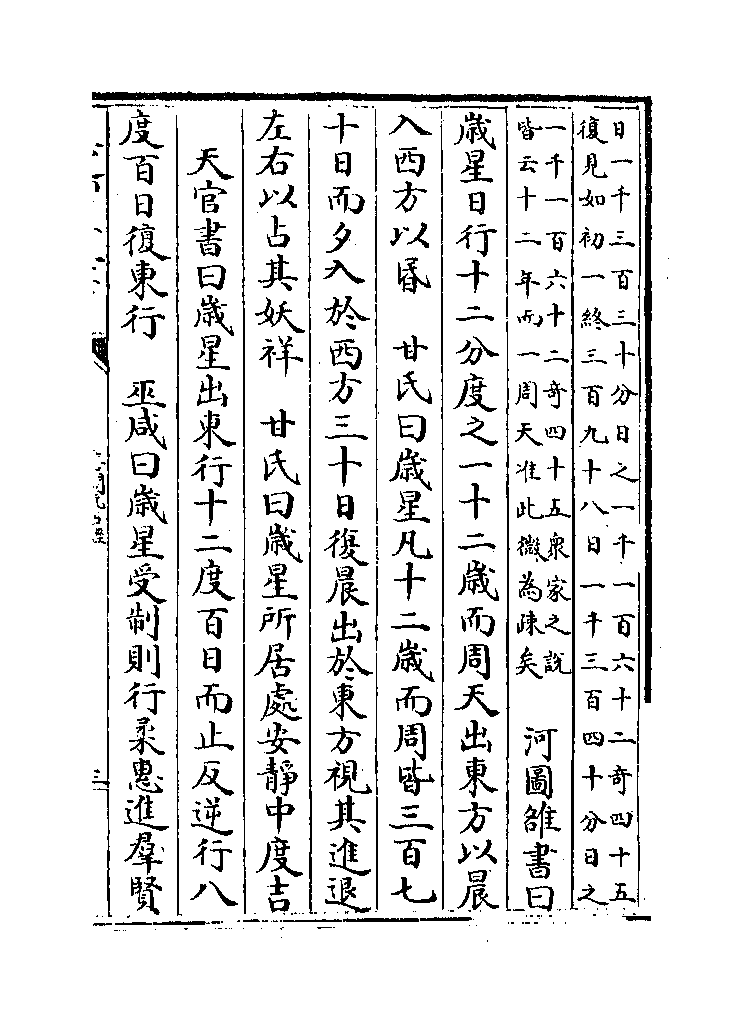 日一千三百三十分日之一千一百六十二奇四十五
復見如初一終三百九十八日一千三百四十分日之
一千一百六十二奇四十五衆家之說
皆云十二年而一周天准此微為疎矣
河圖雒書曰
歲星日行十二分度之一十二歲而周天出東方以晨
入西方以昬　甘氏曰歲星凡十二歲而周皆三百七
十日而夕入於西方三十日復晨出於東方視其進退
左右以占其妖祥　甘氏曰歲星所居處安靜中度吉
天官書曰歲星出東行十二度百日而止反逆行八
度百日復東行　巫咸曰歲星受制則行柔惠進羣賢
三